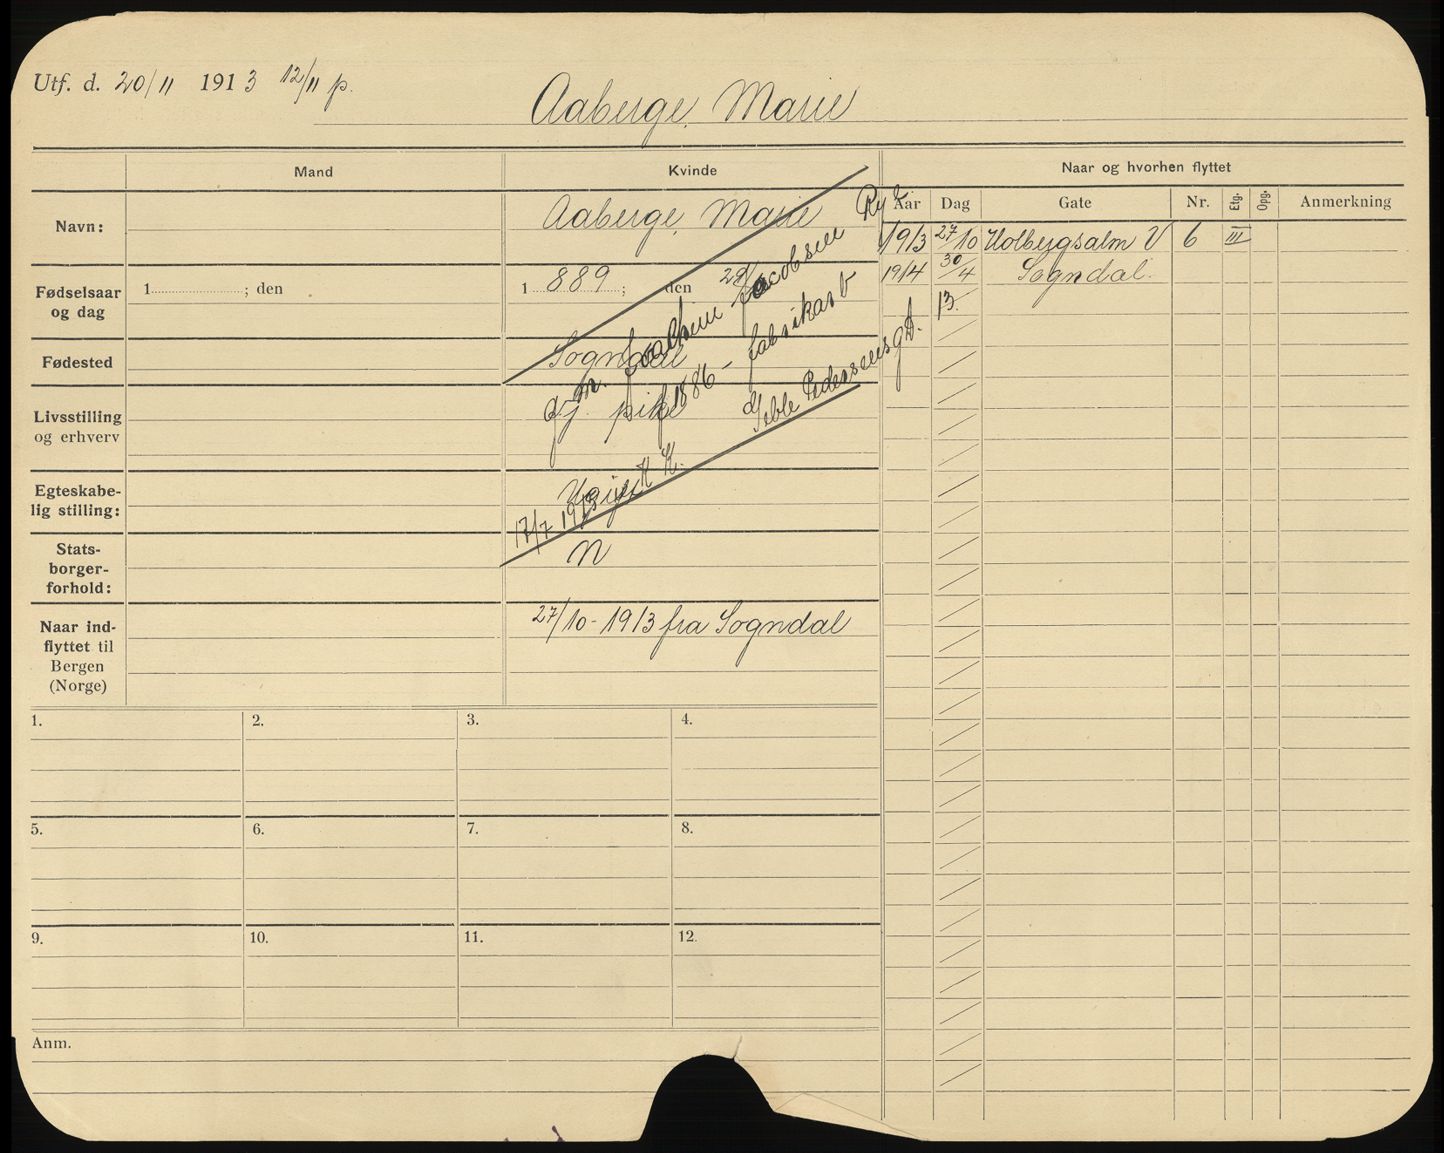 Utf. d. 20/11 1913 12/11 p.
Aaberge, Marie
Mand
Kvinde
Naar og hvorhen flyttet
Aar
Dag
Gate
Nr.
Etg.
Opg.
Anmerkning
Navn:
Aaberge, Marie
1913 27/10 Holbergsalm V 6 III
1914 30/4 Sogndal.
13.
Fødselsaar
og dag
1 ; den
1 889 ; den 29/
Fødested
Sogndal
Livsstilling
og erhverv
pike
m. Joachim Jacobsen
f 1886 - fabrikarb
Geble Pedersensgt.
17/7 1915
Egteskabe-
lig stilling:
Ugift
Stats-
borger-
forhold:
N
Naar ind-
flyttet til
Bergen
(Norge)
27/10 - 1913 fra Sogndal
1.
2.
3.
4.
5.
6.
7.
8.
9.
10.
11.
12.
Anm.